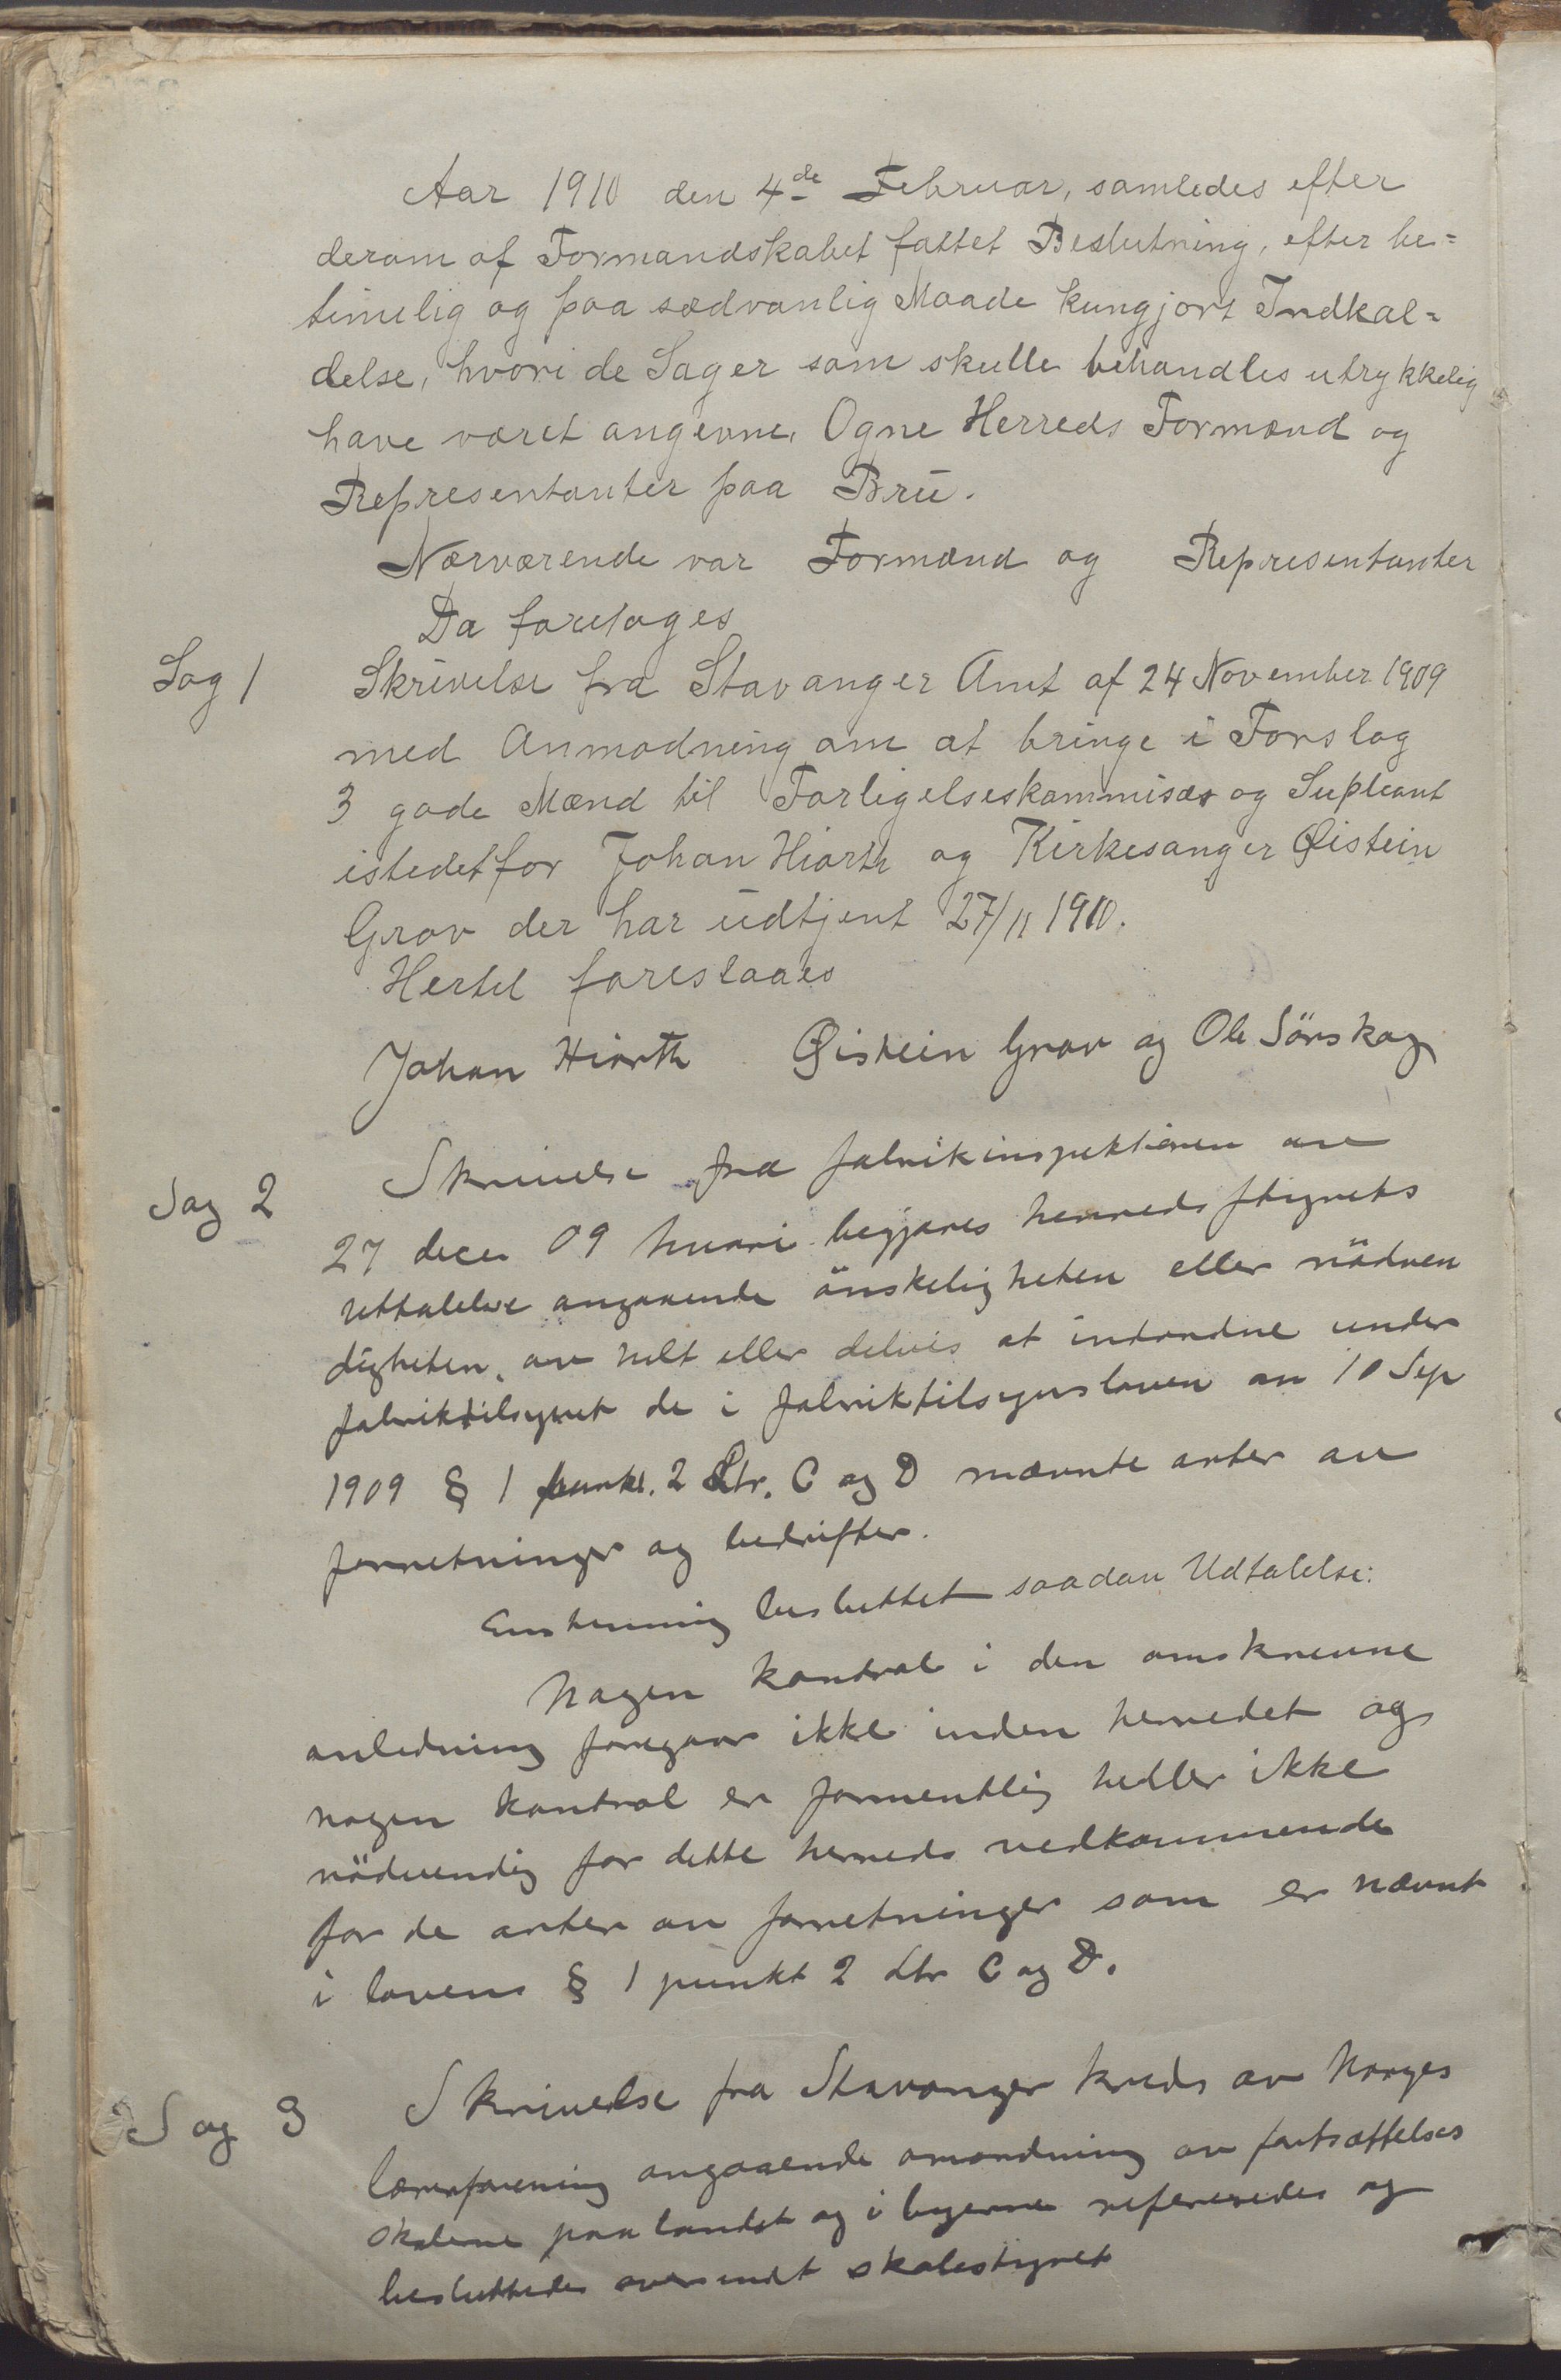 Aar 1910 den 4de Februar, samledes efter
derom af Formandskabet fattet Beslutning, efter be=
timelig og paa sædvanlig Maade kungjort Indkal=
delse, hvori de Sager som skulle behandles utrykkelig
have været angivne, Ogne Herreds Formænd og
Representanter paa Bru.
Nærværende var Formænd og Representanter
Da foretoges
Sag 1 Skrivelse fra Stavanger Amt af 24 November 1909
med Anmodning om at bringe i Forslag
3 gode Mænd til Forligelseskommisær og Supleant
istedetfor Johan Hiorth og Kirkesanger Øistein
Grov der har udtjent 27/11 1910.
Hertil foreslaaes
Johan Hiorth Øistein Grov og Ole Sörskog
Sag 2 Skrivelse fra fabrikinspektionen av
27 decer 09 hvori begjæres herredsstyrets
uttalelse angaaende önskeligheten eller nödven
digheten, av helt eller delvis at indordne under
fabriktilsynet de i fabriktilsynsloven av 10 Sep
1909 § 1 punkt. 2 Ltr. C og D nævnte arter av
forretninger og bedrifter.
Enstemmig besluttet saadan Udtalelse:
Nogen kontrol i den omskrevne
anledning foregaar ikke inden herredet og
nogen kontrol er formentlig heller ikke
nödvendig for dette herreds vedkommende
for de arter av forretninger som er nævnt
i lovens § 1 punkt 2 Ltr C og D.
Sag 3 Skrivelse fra Stavanger kreds av Norges
lærerforening angaaende omordning av fortsættelses
skolerne paa landet og i byerne refereredes og
besluttedes oversendt skolestyret